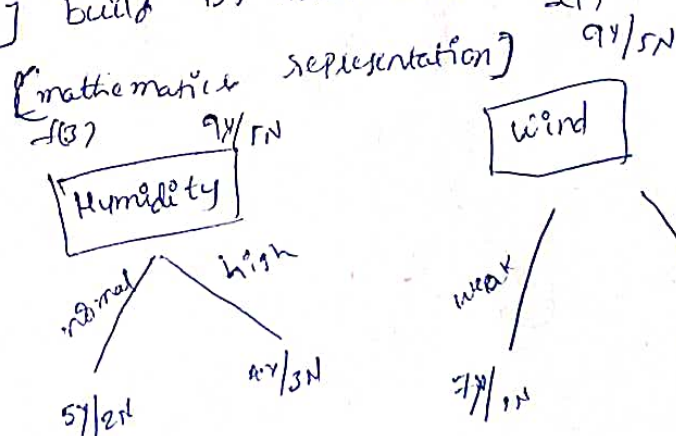 ] build
[mathematics representation]
f(3) 9Y/5N
9Y/5N
Humidity
Wind
normal high
weak
5Y/2N
4Y/3N
7Y/1N